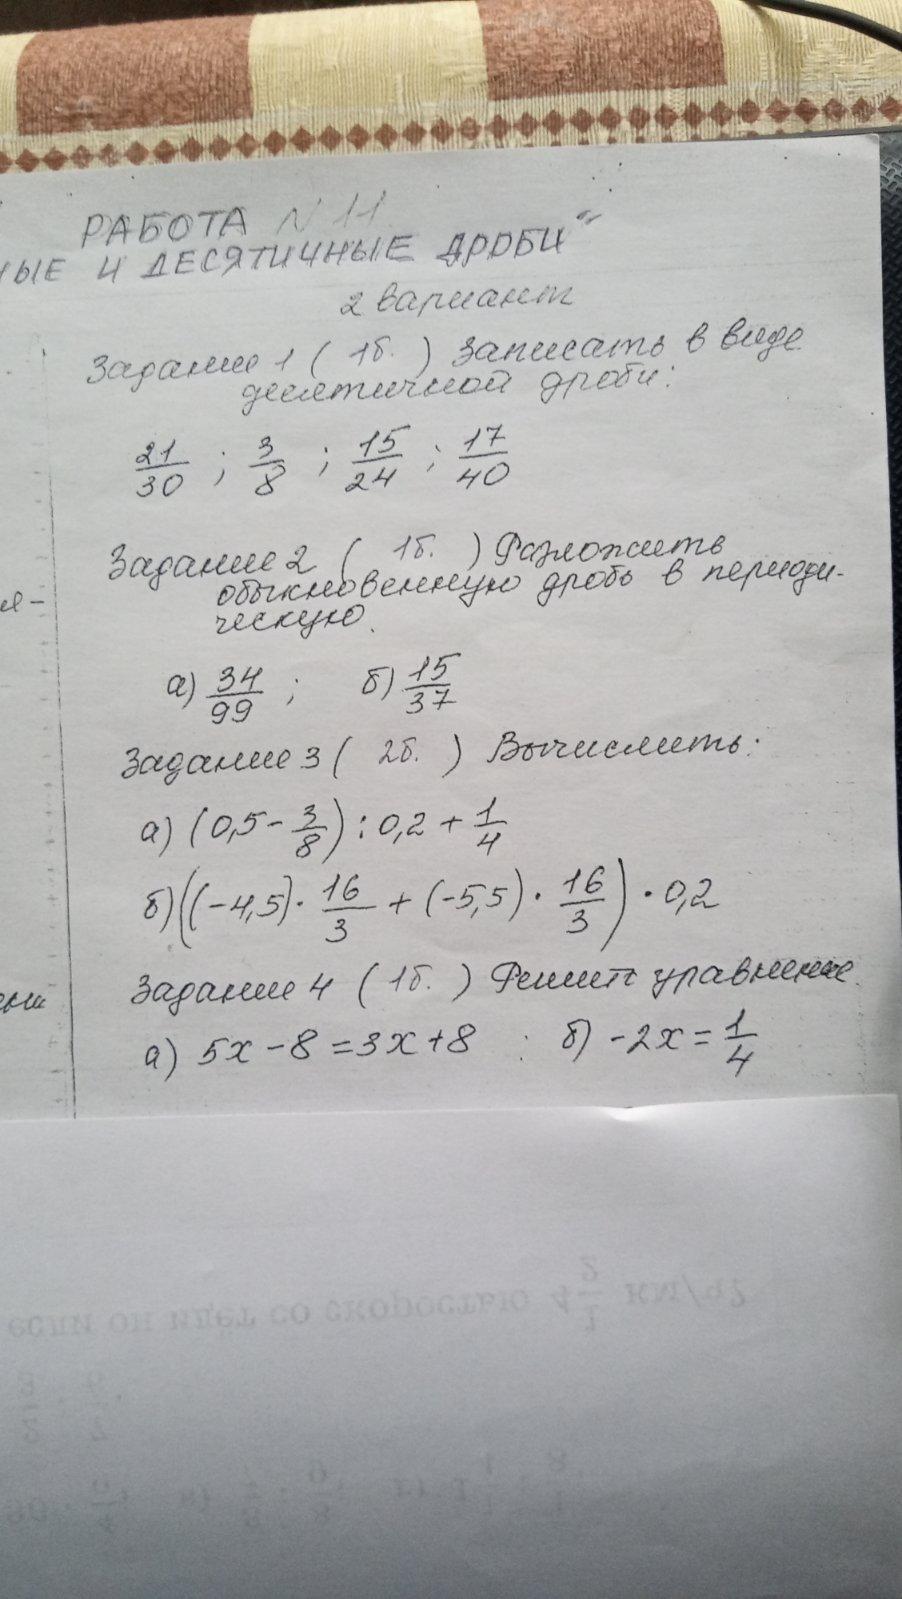 РАБОТА N 11
НЫЕ И ДЕСЯТИЧНЫЕ ДРОБИ"
2 вариант
Задание 1 ( 1б. ) Записать в виде
десятичной дроби:
21/30 ; 3/8 ; 15/24 ; 17/40
Задание 2 ( 1б. ) Разложить
обыкновенную дробь в периоди-
ческую.
а) 34/99 ; б) 15/37
Задание 3 ( 2б. ) Вычислить:
а) (0,5 - 3/8) : 0,2 + 1/4
б) ((-4,5) · 16/3 + (-5,5) · 16/3) · 0,2
Задание 4 ( 1б. ) Решить уравнение.
а) 5x - 8 = 3x + 8 ; б) -2x = 1/4